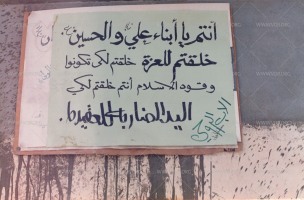 أنتم يا أبناء علي والحسين
خلقتم للعزة خلقتم لكي تكونوا
وقود الاسلام أنتم خلقتم لكي
اليد الضاربة
الأب الروحي